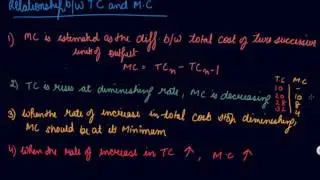 Relationship b/w TC and M.C
1) MC is estimated as the diff. b/w total cost of two successive
unit of output
MC = TCn - TCn-1
TC MC
10 -
20 10
28 8
32 4
2) TC is rise at diminishing rate, MC is decreasing
3) when the rate of increase in total cost stop diminishing,
MC should be at its Minimum
4) when the rate of increase in TC ↑, M.C ↑